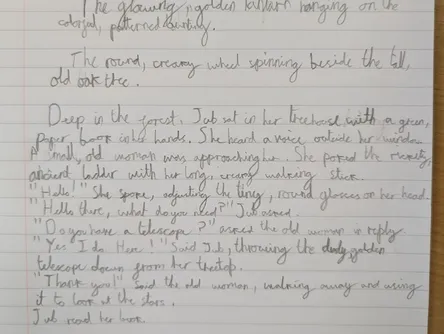 The glowing, golden lantern hanging on the
colorful, patterned bunting.
The round, creamy wheel spinning beside the tall,
old oak tree.
Deep in the forest. Jub sat in her treehouse with a green,
paper, book in her hands. She heard a voice outside her window.
A small, old woman was approaching her. She poked the rickety,
ancient ladder with her long, creamy walking stick.
"Hello!" She spoke, adjusting the tiny, round glasses on her head.
"Hello there, what do you need?" Jub asked.
"Do you have a telescope?" asked the old woman in reply
"Yes I do. Here!" Said Jub, throwing the golden
telescope down from her treetop.
"Thank you!" Said the old woman, walking away and using
it to look at the stars.
Jub read her book.